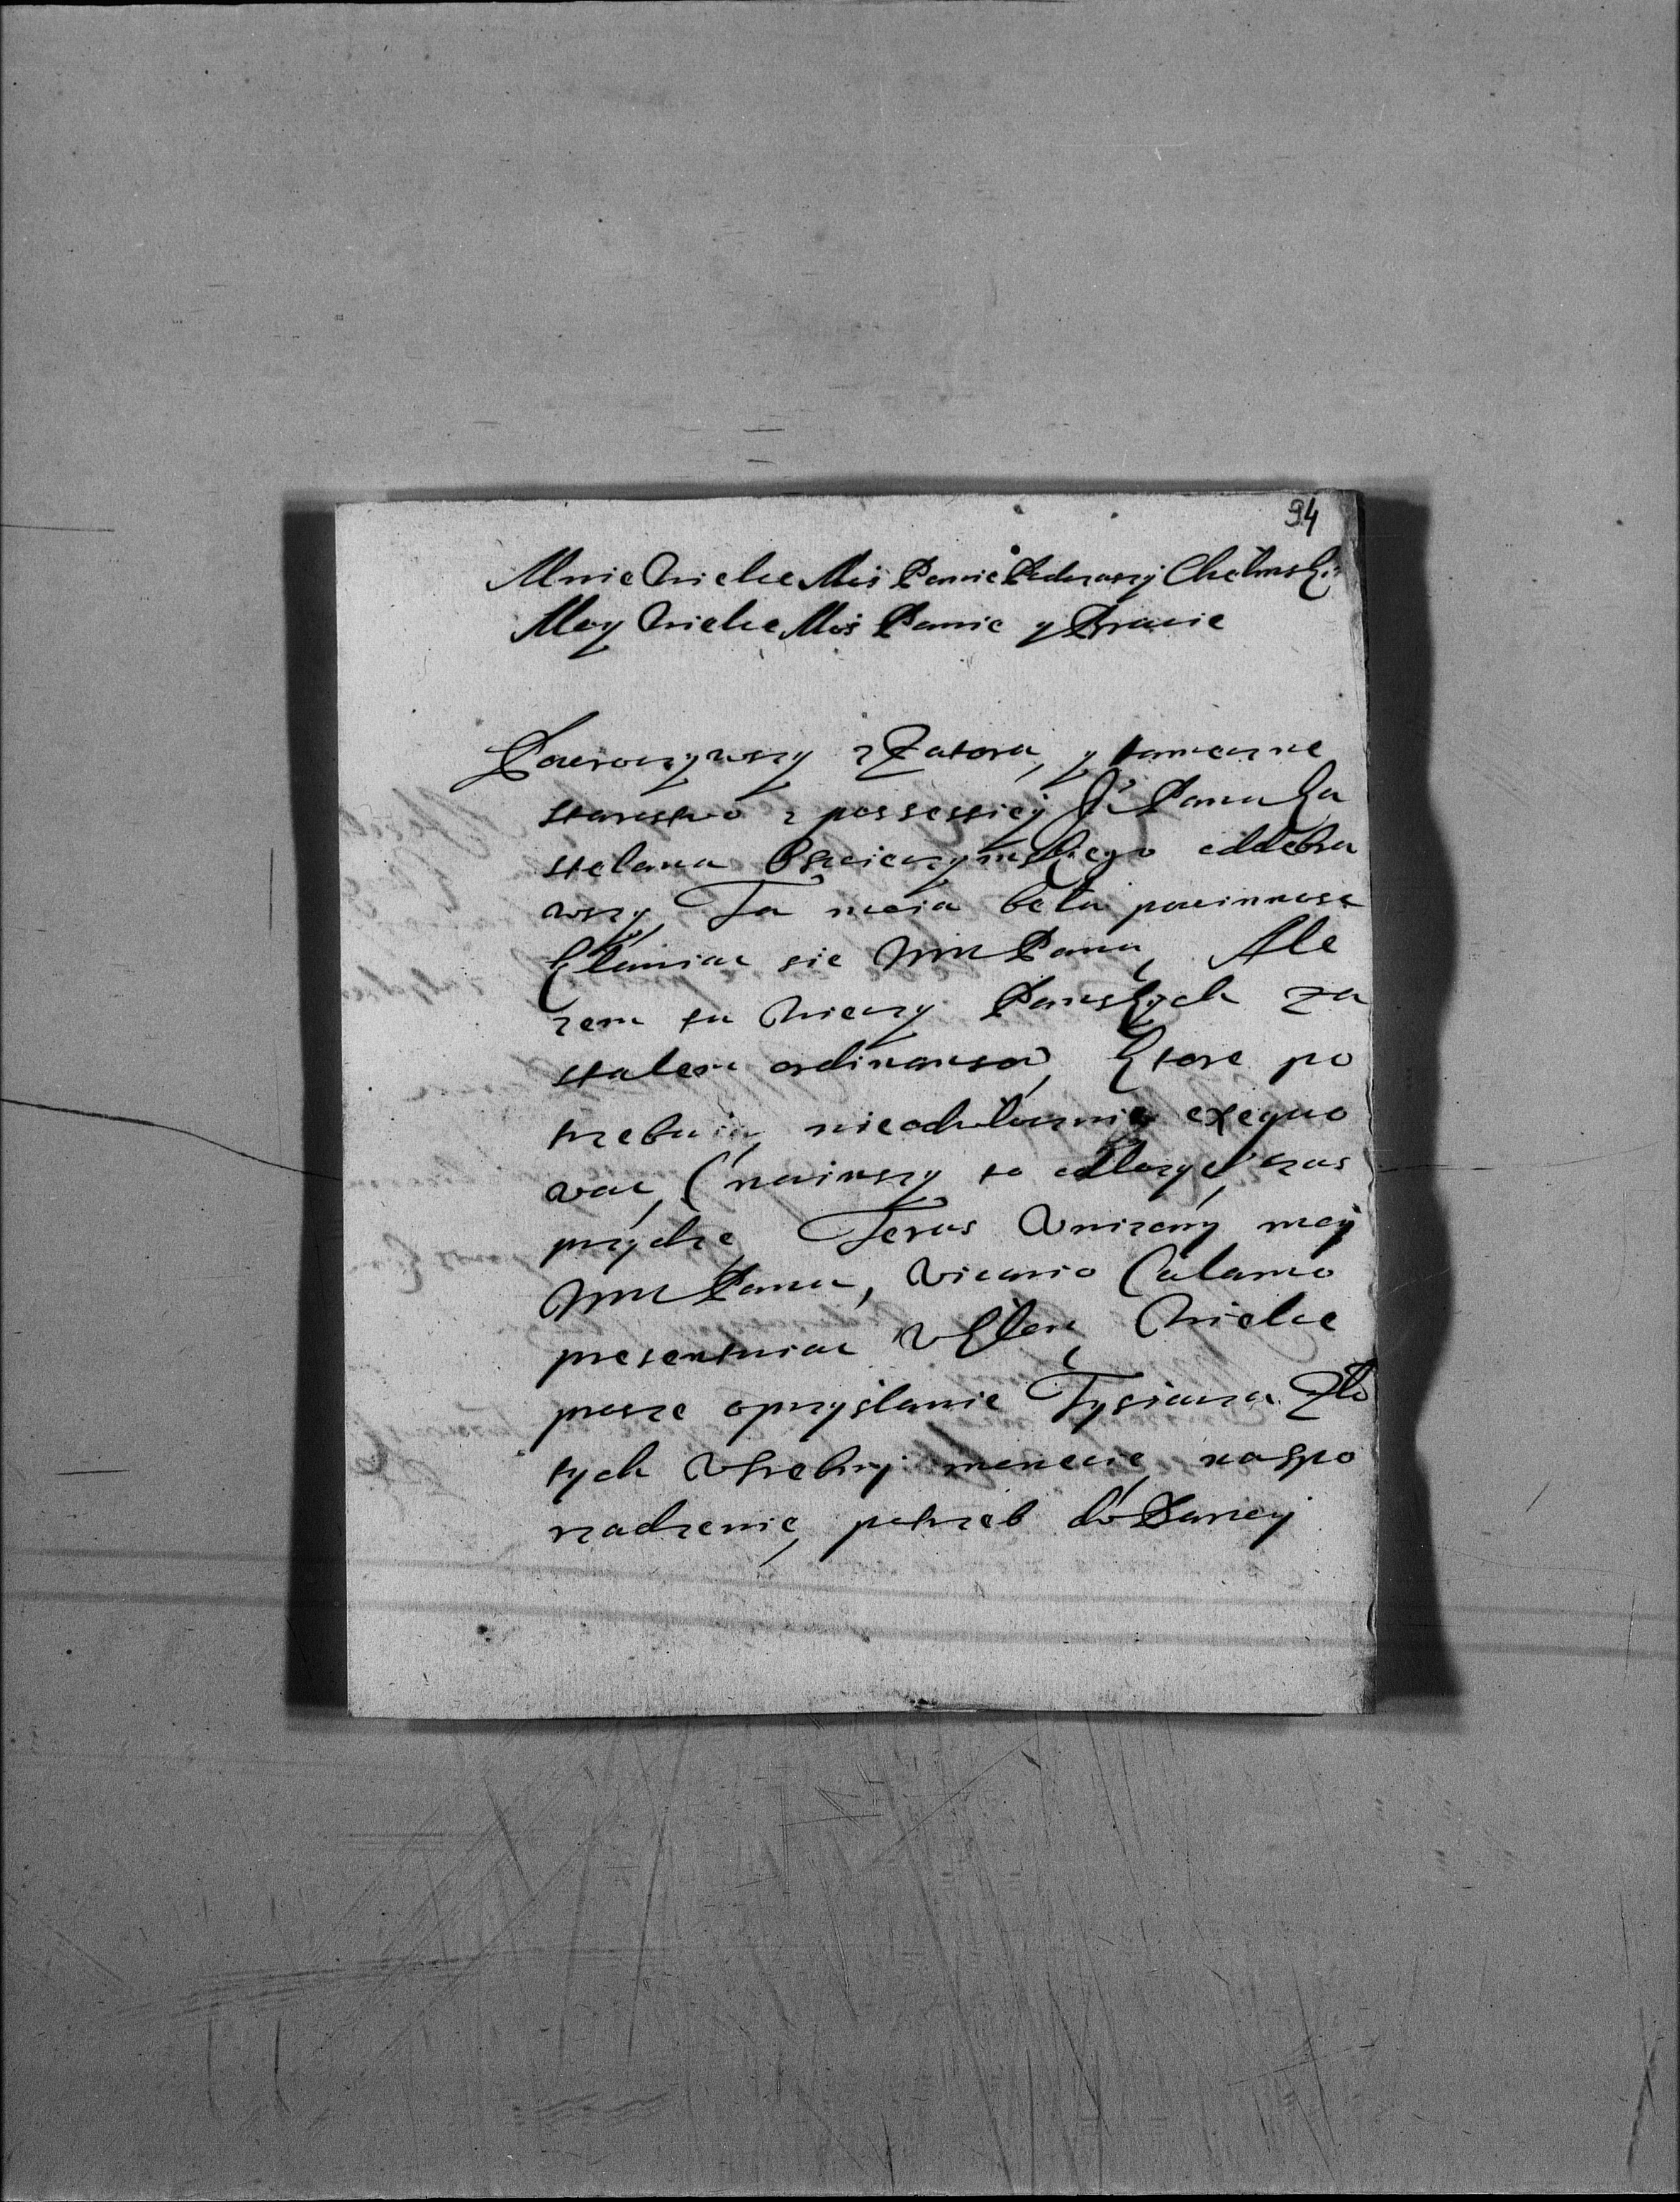 94
Mnie Wielce Mśi Panie Podczaszy Chełmski
Moy Wielce Mśi Panie y Bracie
Powroczywszy z Zatora, y tameczne
starostwo z possessiey Je° Pana Ka
stelana Oswieczymskiego oddebra
wszy, Ta moia beła powinnosc
kłaniac sie WM Panu, Ale
zem tu wieczy Panskych za
stałem ordinansow, ktore po
trzebuią, nieodwłocznie exequo
wac, (na inszy to odłozyc czas
przydze, Teras Vnizony moy
WM Panu, vicario Calamo
presentuiac Vkłon, Wielce
prosze oprzysłanie Tysiacza Zło
tych Wsrebny monecie, naspo
rzadzenie, potrzeb do Barwy